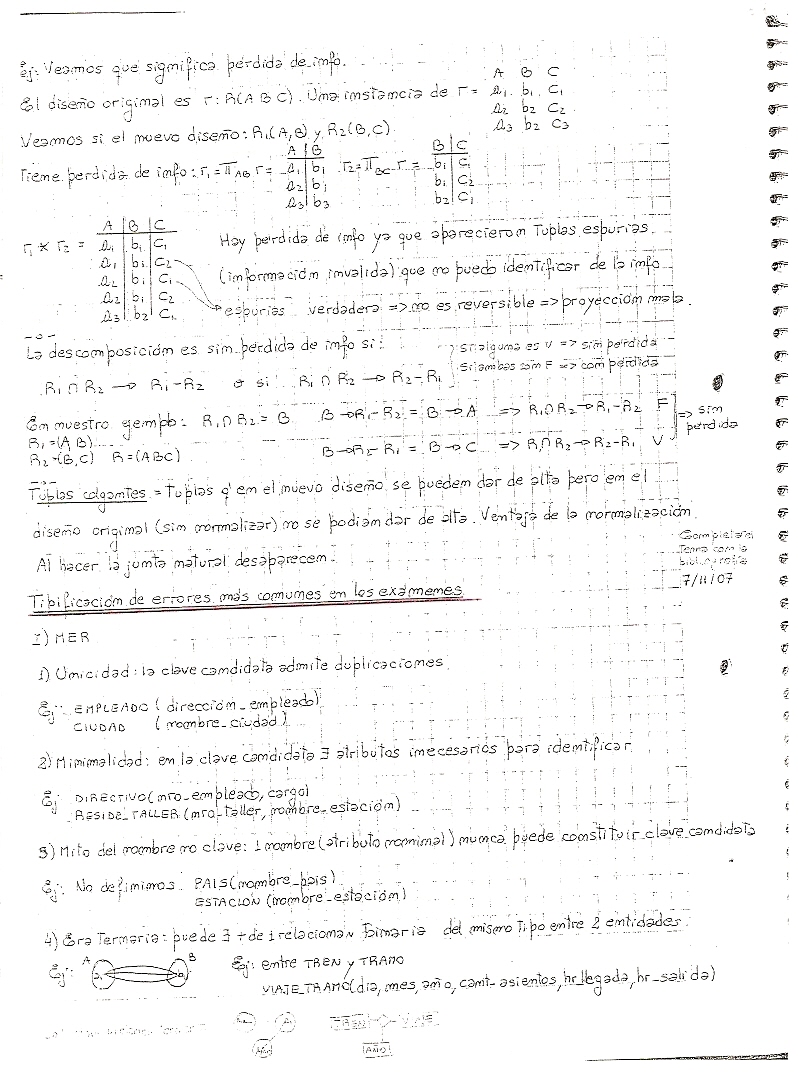 Ej: Veamos que significa pérdida de info.
El diseño original es r: R(A B C). Una instancia de r =
A B C
a1 b1 c1
a2 b2 c2
a3 b2 c3
Veamos si el nuevo diseño: R1(A,B) y R2(B,C)
Tiene perdida de info: r1 = π AB r =
A | B
a1 | b1
a2 | b1
a3 | b3
r2 = π BC r =
B | C
b1 | c1
b1 | c2
b2 | c1
r1 * r2 =
A | B | C
a1 | b1 | c1
a1 | b1 | c2
a2 | b1 | c1
a2 | b1 | c2
a3 | b2 | c1
Hay perdida de info ya que aparecieron Tuplas espurias.
(información invalida) que no puedo identificar de la info
espurias verdadera => no es reversible => proyección mala.
-o-
La descomposición es sin perdida de info si:
Si alguna es V => sin perdida
Si ambas son F => con perdida
R1 ∩ R2 → R1 - R2 o si R1 ∩ R2 → R2 - R1
En nuestro ejemplo: R1 ∩ R2 = B B → R1 - R2 = B → A => R1 ∩ R2 → R1 - R2 F
R1 = (A B)
=> sin perdida
R2 = (B,C) R = (ABC) B → R2 - R1 = B → C => R1 ∩ R2 → R2 - R1 V
Tuplas colgantes = Tuplas q' en el nuevo diseño se pueden dar de alta pero en el
diseño original (sin normalizar) no se podian dar de alta. Ventaja de la normalización
Al hacer la junta natural desaparecen.
Completar
Tema con la
bibliografia
7/11/07
Tibificación de errores más comunes en los exámenes
I) MER
1) Unicidad: la clave candidata admite duplicaciones
Ej: EMPLEADO (dirección_empleado)
CIUDAD (nombre_ciudad)
2) Minimalidad: en la clave candidata ∃ atributos inecesarios para identificar
Ej: DIRECTIVO (nro_empleado, cargo)
RESIDE_TALLER (nro_taller, nombre_estación)
3) Mito del nombre no clave: 1 nombre (atributo nominal) nunca puede constituir clave candidata
Ej: No definimos PAIS (nombre_pais)
ESTACION (nombre_estación)
4) Era Ternaria: puede ∃ + de 1 relacionan binaria del mismo Tipo entre 2 entidades
Ej: A B
Ej: entre TREN y TRAMO
VIAJE_TRAMO (dia, mes, año, cant_asientos, hr_llegada, hr_salida)
TREN
Año
AÑO